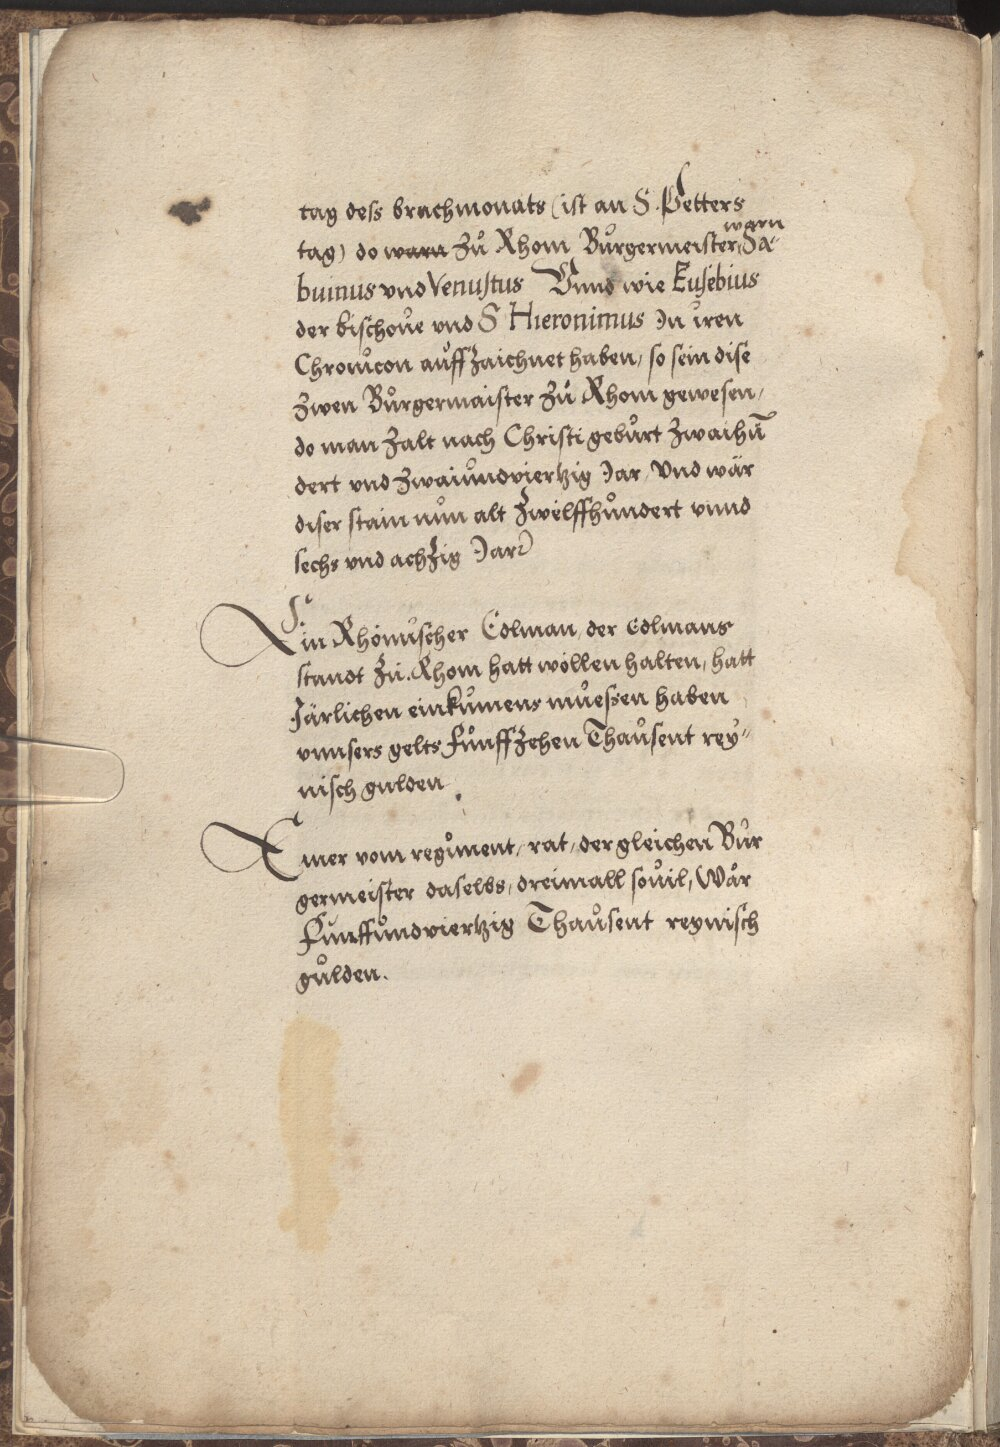 tag dess brachmonats (ist an S. Petters
tag) do warn zů Rhom Burgermeister warn Sa-
buinus vnd Venustus Vnnd wie Eusebius
der bischoue vnd S Hieronimus Jn iren
Chronicon auffzaichnet haben, so sein dise
zwen Bůrgermaister zů Rhom gewesen,
do man zalt nach Christi gebůrt zwaihū
dert vnd zwaiundviertzig Jar, Vnd wär
diser stain nůn alt zwelffhůndert vnnd
sechs vnd achzig Jar
Ein Rhömischer Edlman, der Edlmans
standt zů Rhom hatt wöllen halten, hatt
Järlichen einkůmens müessen haben
vnnsers gelts Fůnffzehen Thaůsent rey-
nisch gulden.
Einer vom regiment, rat, der gleichen Bur
germeister daselbs, dreimall souil, Wär
Funffůndviertzig Thaůsent reynisch
gůlden.